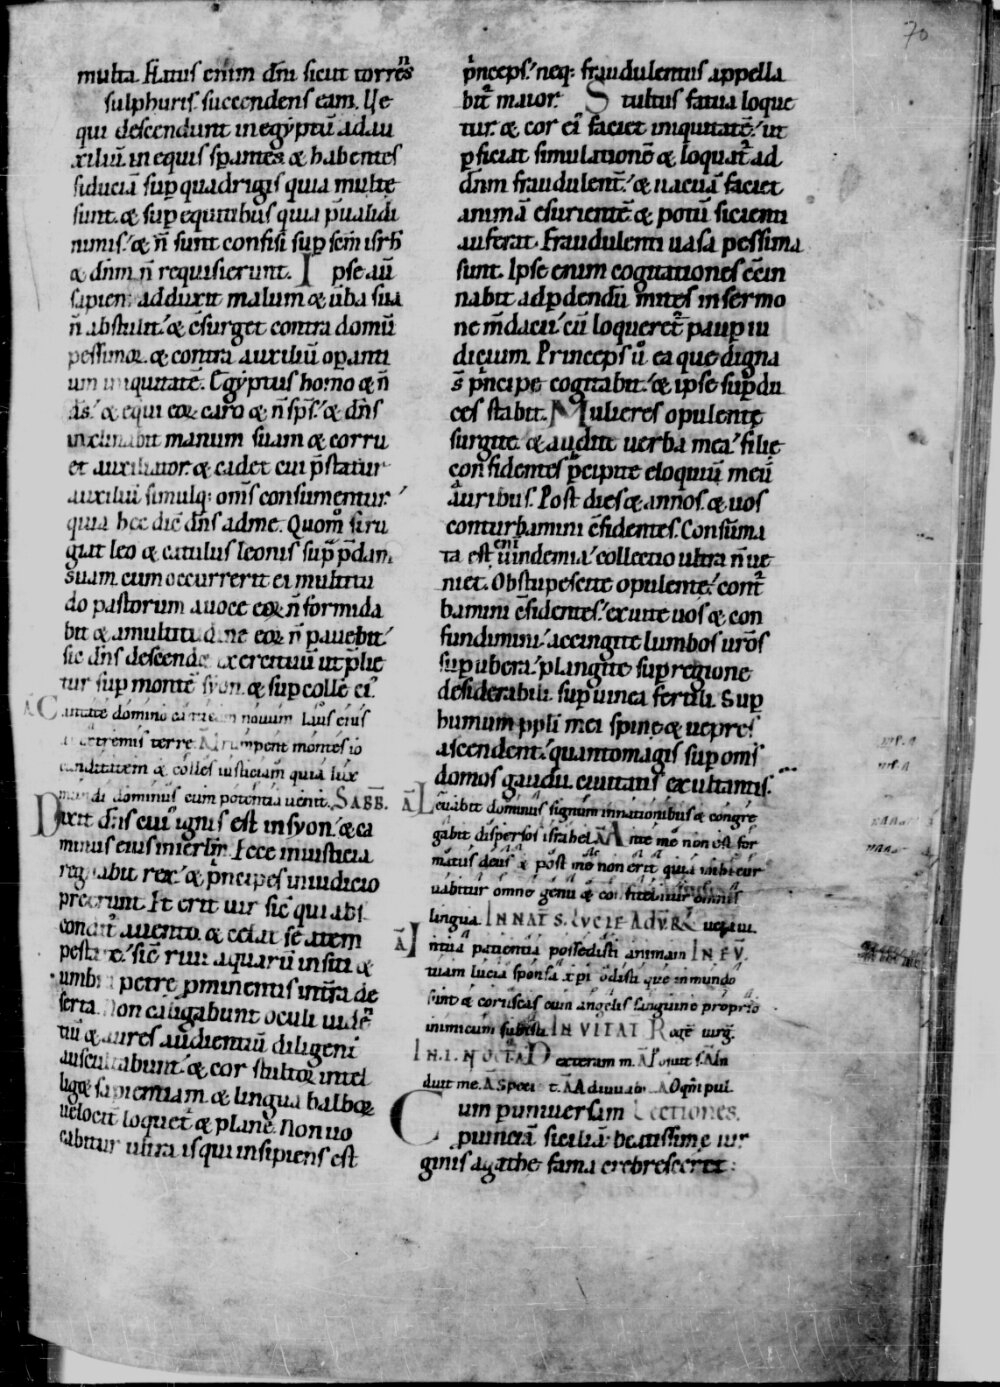 70
multa. Flatus enim dñi sicut torrēs
sulphuris. succendens eam. Ue
qui descendunt in egyptū ad au
xiliū in equis sp̄antes & habentes
fiduciā sup quadrigis quia multe
sunt. & sup equitibus quia p̄ualidi
nimis. & ñ sunt confisi sup sc̄m isrł
& dñm ñ requisierunt. Ipse aū
sapiens adduxit malum & ūba sua
ñ abstulit. & c̄surget contra domū
pessimoꝝ. & contra auxiliū operanti
um iniquitatē. Egyptus homo & ñ
d̄s. & equi eoꝝ caro & ñ sp̄s. & dñs
inclinabit manum suam & corru
et auxiliator. & cadet cui p̄statur
auxiliū simulq: oms consumentur.
quia hec dic̄ dñs ad me. Quom̊ si ru
giat leo & catulus leonis sup p̄dam
suam. cum occurrerit ei multitu
do pastorum a uoce eoꝝ ñ formida
bit & a multitudine eoꝝ ñ pauebit.
sic dñs descende exercituū ut p̄lie
tur sup montē syon. & sup collē ei᾿.
Ā Cantate domino canticum nouum. Laus eius
ab extremis terre. Ā Irrumpent montes io
cunditatem & colles iusticiam quia lux
mundi dominus cum potentia uenit. SABB.
Dixit dñs cui᾿ ignis est in syon. & ca
minus eius in ierlm̄. Ecce in iusticia
regnabit rex. & p̄ncipes in iudicio
preerunt. Et erit uir sic̄ qui abs
condit᾿ a uento. & celat se a tem
pestate. sic̄ riui aquarū in siti &
umbra petre p̄minentis in t̄ra de
serta. Non caligabunt oculi uidē
tiū & aures audientiū diligent
auscultabunt. & cor stultoꝝ intel
ligᷓ sapientiam. & lingua balboꝝ
uelocit̄ loquet᾿ & plane. Non uo
cabitur ultra is qui insipiens est
p̄nceps. neq: fraudulentus appella
bit᾿ maior. Stultus fatua loque
tur. & cor ei᾿ faciet iniquitatē. ut
p̱ficiat simulationē & loquat᾿ ad
dñm fraudulent̄. & uacuā faciet
animā esurientē & potū sicienti
auferat. Fraudulenti uasa pessima
sunt. Ipse enim cogitationes c̄cin
nabit ad p̱dendū mites in sermo
ne m̄dacii. cū loqueret᾿ paup iu
dicium. Princeps ů ea que digna
s̄ p̄ncipe cogitabit. & ipse sup du
ces stabit. Mulieres opulente
surgite. & audite uerba mea. filie
confidentes p̱cipite eloquiū meū
auribus. Post dies & annos. & uos
conturbamini c̄fidentes. Consūma
ta est eni uindemia. collectio ultra ñ ue
niet. Obstupescite opulente. cont᾿
bamini c̄fidentes. exuite uos & con
fundimini. accingite lumbos ur̄os
sup ubera. plangite sup regione
desiderabili. sup uinea fertili. Sup
humum ppli mei spine & uepres
ascendent. quantomagis sup om̄s
domos gaudii ciuitatis exultantis.
Ā Leuabit dominus signum in nationibus & congre
gabit dispersos israhel. Ā Ante me non est for
matus deus & post me non erit quia mihi cur
uabitur omne genu & confitebitur omnis
lingua. IN NAT̄ S. LUCIE. AD V̄. R̄ uetaui.
Ā In tua patientia possedisti animam IN EV̄.
tuam lucia sponsa xp̄i odisti que in mundo
sunt & coruscas cum angelis sanguine proprio
inimicum subisti. INVITAT. Regē uirg̃.
IN .I. NOCT̄. Ā Dexteram m. Ā Posuit s. Ā In
duit me. Ā Speci t. Ā Adiuuab. Ā Oq̃m pul
Cum p uniuersam Lectiones.
puinciā siciliā beatissime uir
ginis agathe fama crebresceret: